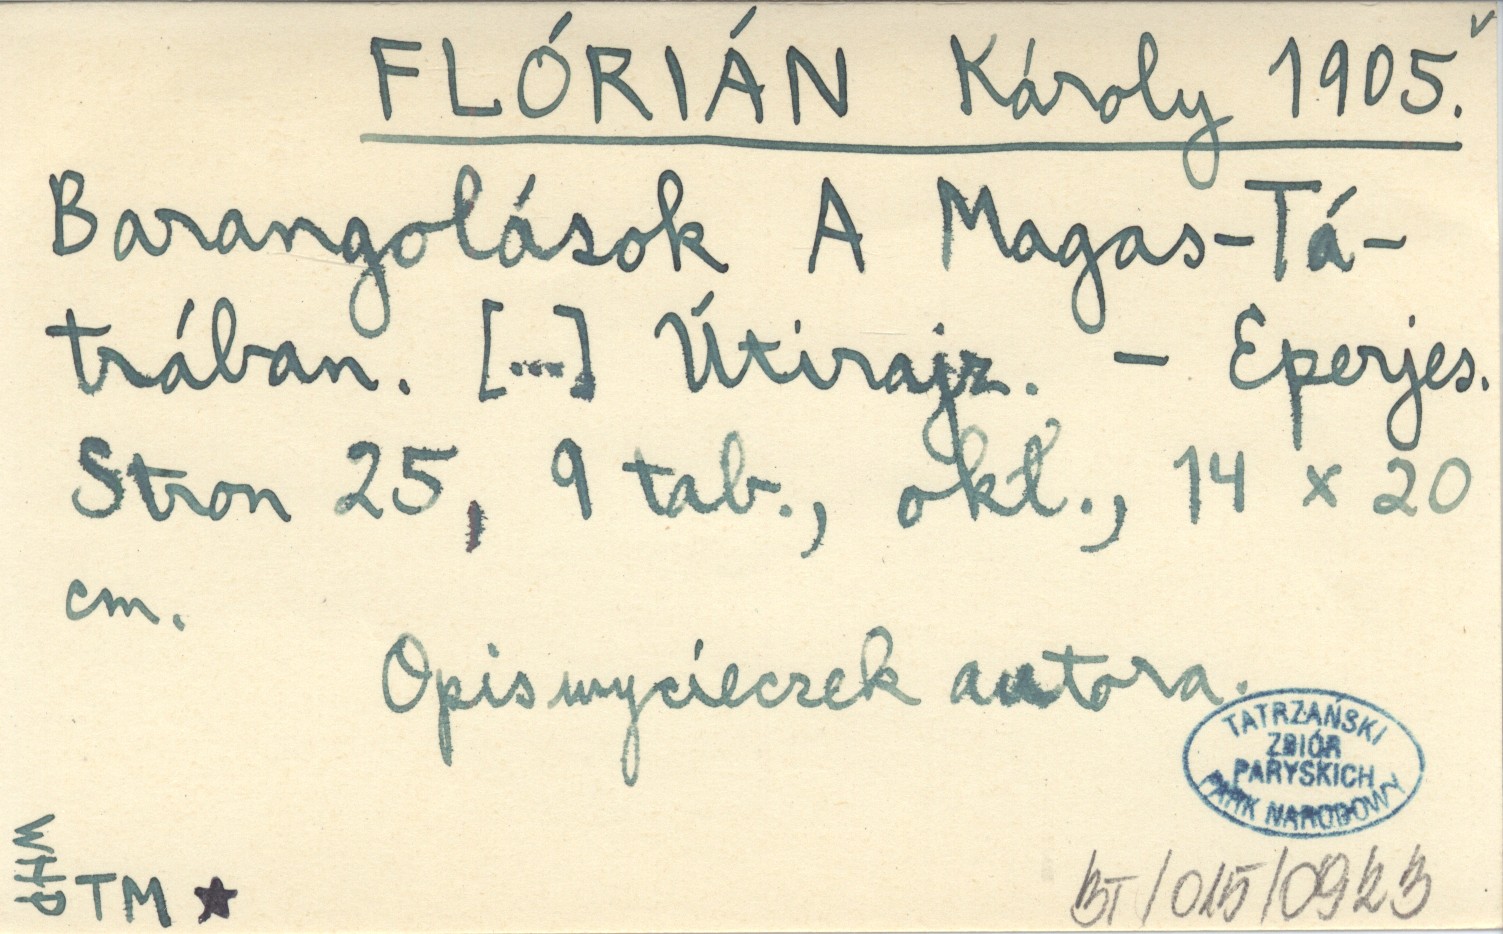 FLÓRIÁN Károly 1905.
Barangolások A Magas-Tá-
trában. [...] Útirajz. - Eperjes.
Stron 25, 9 tab., okł., 14 x 20
cm.
Opis wycieczek autora.
TATRZAŃSKI
ZBIÓR
PARYSKICH
PARK NARODOWY
WHP
TM ★
BT/015/0923